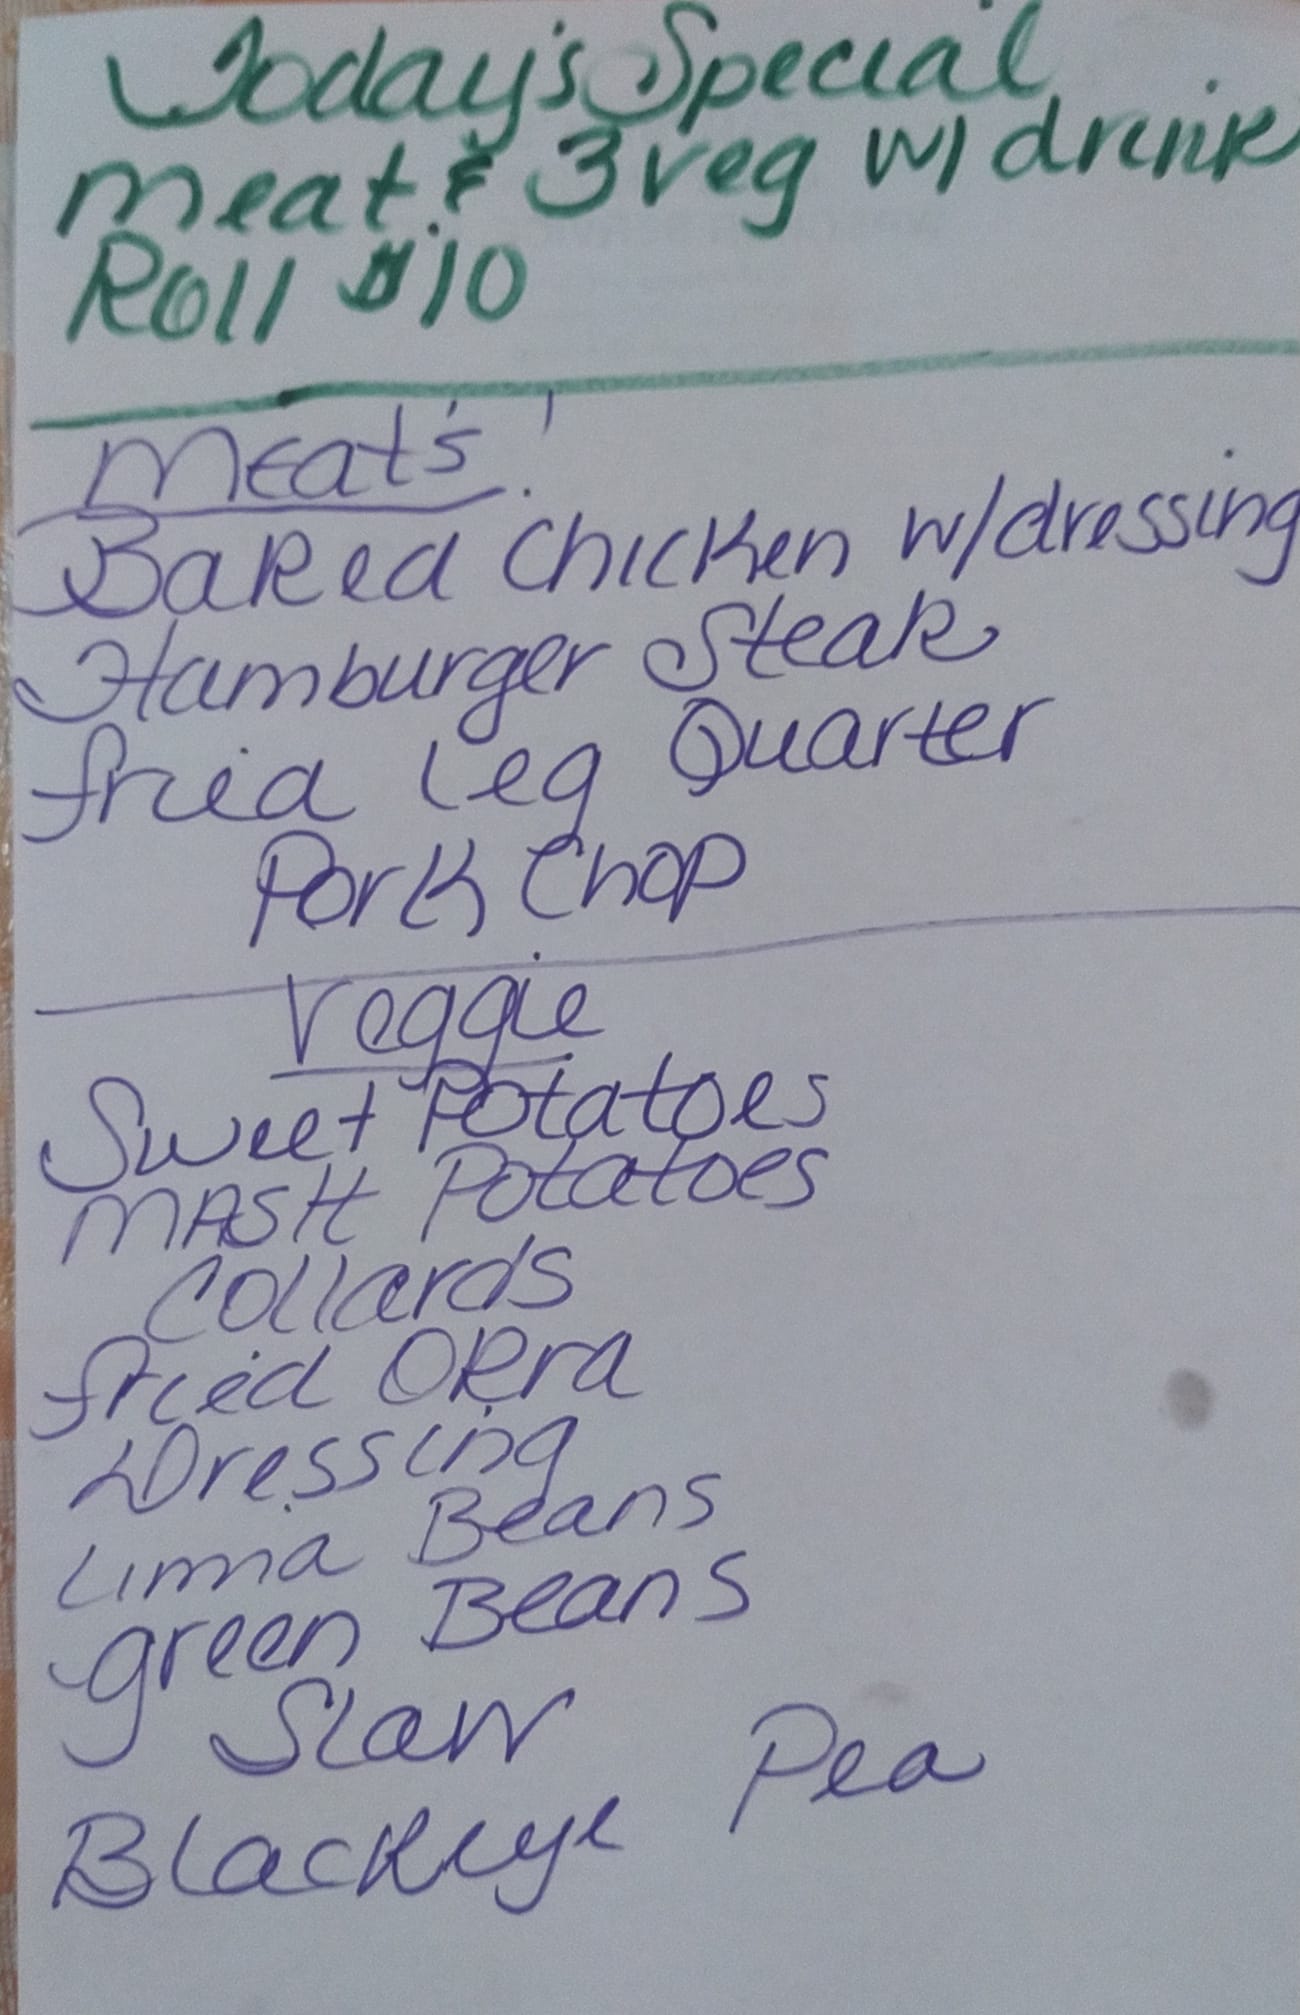 Today's Special
meat & 3 veg w/ drink
Roll $10
Meat's!
Baked Chicken w/dressing
Hamburger Steak
fried Leg Quarter
Pork Chop
Veggie
Sweet Potatoes
MASH Potatoes
Collards
fried Okra
Dressing
Lima Beans
green Beans
Slaw
Blackeye Pea